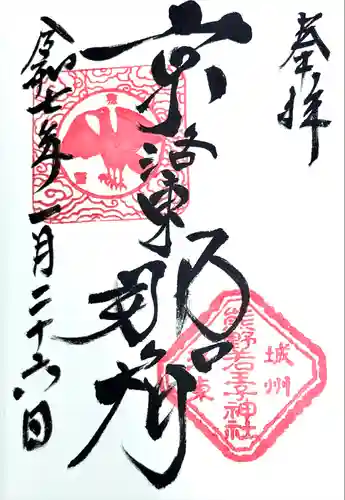 奉拝
京洛東
那智
熊野若王子神社
城州
洛東
令和七年一月二十六日